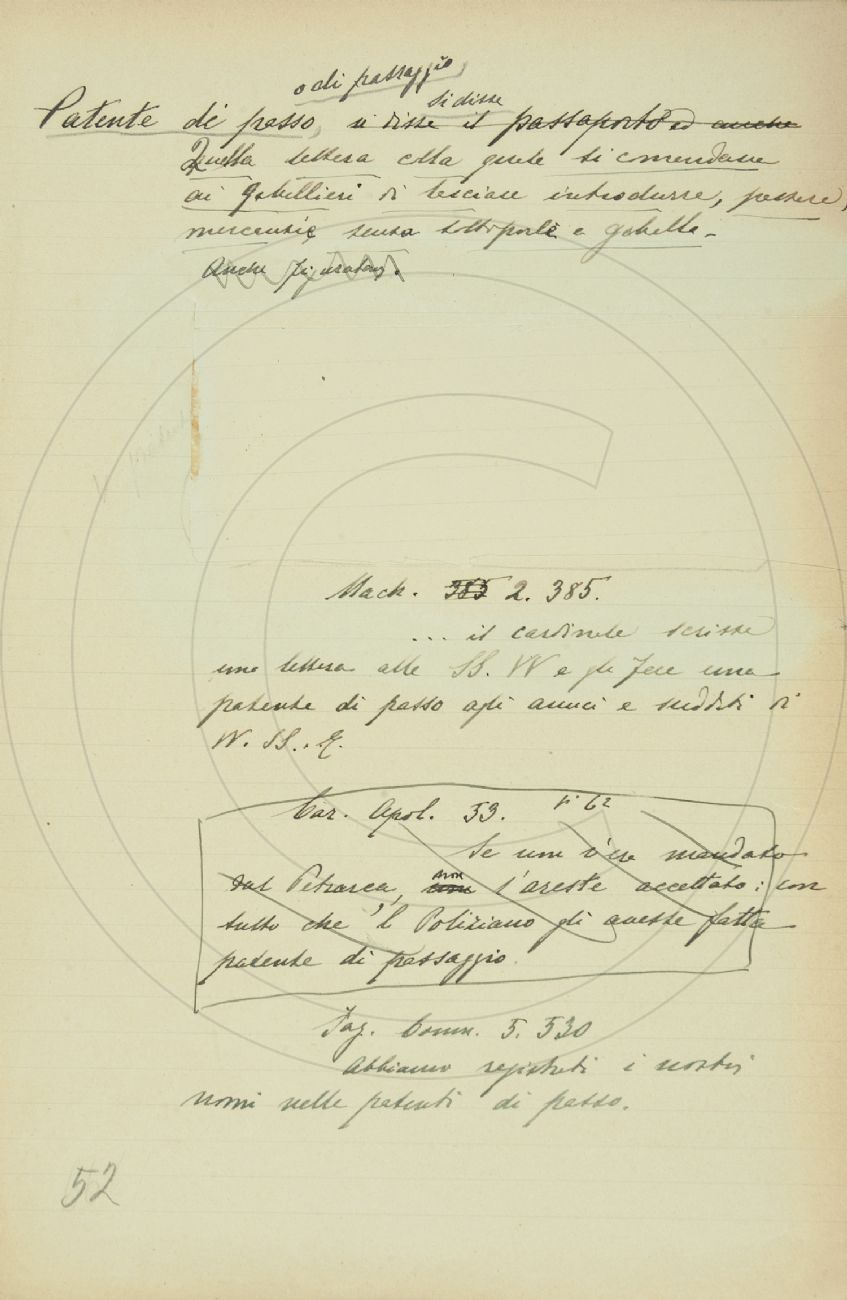 o di passaggio
Patente di passo, si disse il passaporto ed anche
si disse
Quella lettera colla quale si comandava
ai Gabellieri di lasciare introdurre, passare,
mercanzie senza sottoporle a gabella.
Anche figuratam.
Mach. 385 2. 385.
... il cardinale scrisse
una lettera alle SS. VV e gli fece una
patente di passo agli amici e sudditi di
V. SS. E.
Car. Apol. 53.
Se non v'era mandato
dal Petrarca, non l'areste accettato: con
tutto che 'l Poliziano gli avesse fatta
patente di passaggio.
Fag. Comm. 5. 530
Abbiamo registrati i nostri
nomi nelle patenti di passo.
52